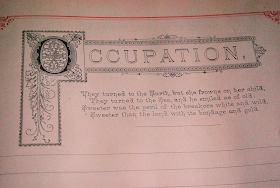 OCCUPATION.
They turned to the Earth, but she frowns on her child,
They turned to the Sea, and he smiled as of old,
Sweeter was the peril of the breakers white and wild,
Sweeter than the land with its bondage and gold.